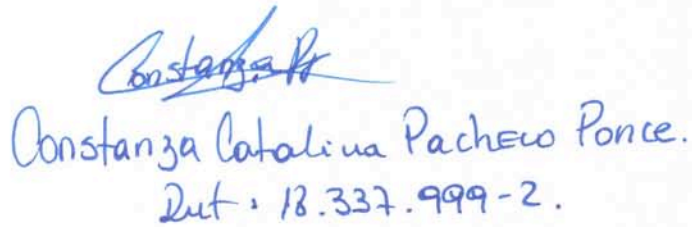 Constanza P
Constanza Catalina Pacheco Ponce.
Rut: 18.337.999-2.